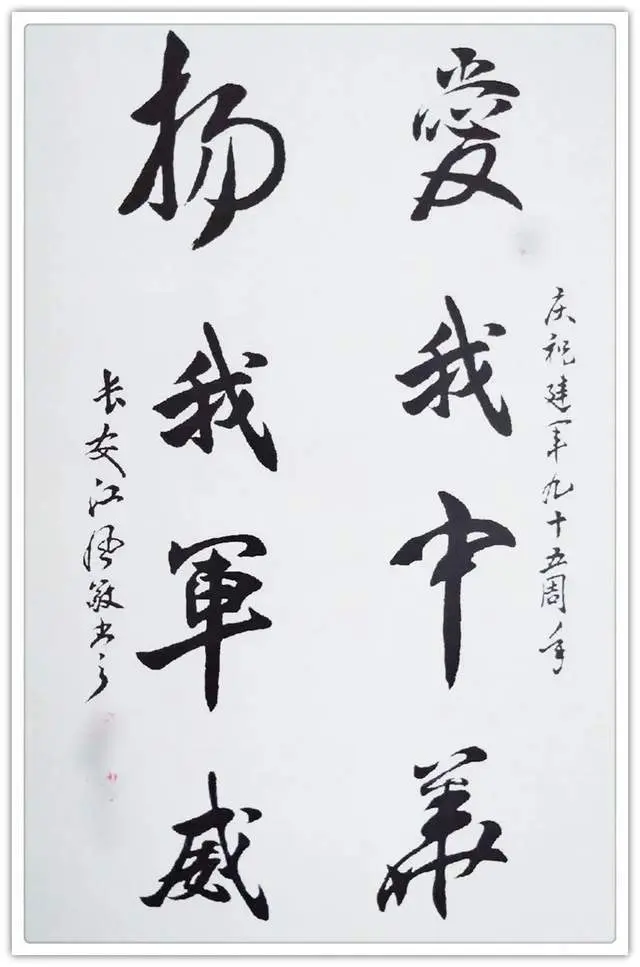 庆祝建军九十五周年
愛我中華
扬我軍威
长安江敏书之